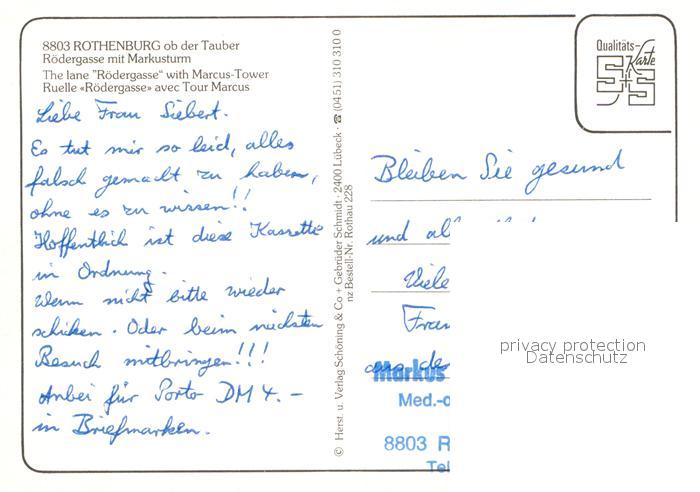 8803 ROTHENBURG ob der Tauber
Rödergasse mit Markusturm
The lane "Rödergasse" with Marcus-Tower
Ruelle «Rödergasse» avec Tour Marcus
Liebe Frau Siebert.
Es tut mir so leid, alles
falsch gemacht zu haben,
ohne es zu wissen!!
Hoffentlich ist diese Kassette
in Ordnung.
Wenn nicht bitte wieder
schicken. Oder beim nächsten
Besuch mitbringen!!!
Anbei für Porto DM 4.-
in Briefmarken.
© Herst. u. Verlag Schöning & Co + Gebrüder Schmidt · 2400 Lübeck · ☎ (0451) 310 310 0
nz Bestell-Nr. Rothau 228
Qualitäts-
Karte
S+S
Bleiben Sie gesund
und
Viele
aus de
Markus
Med.-
8803 R
Tel
privacy protection
Datenschutz